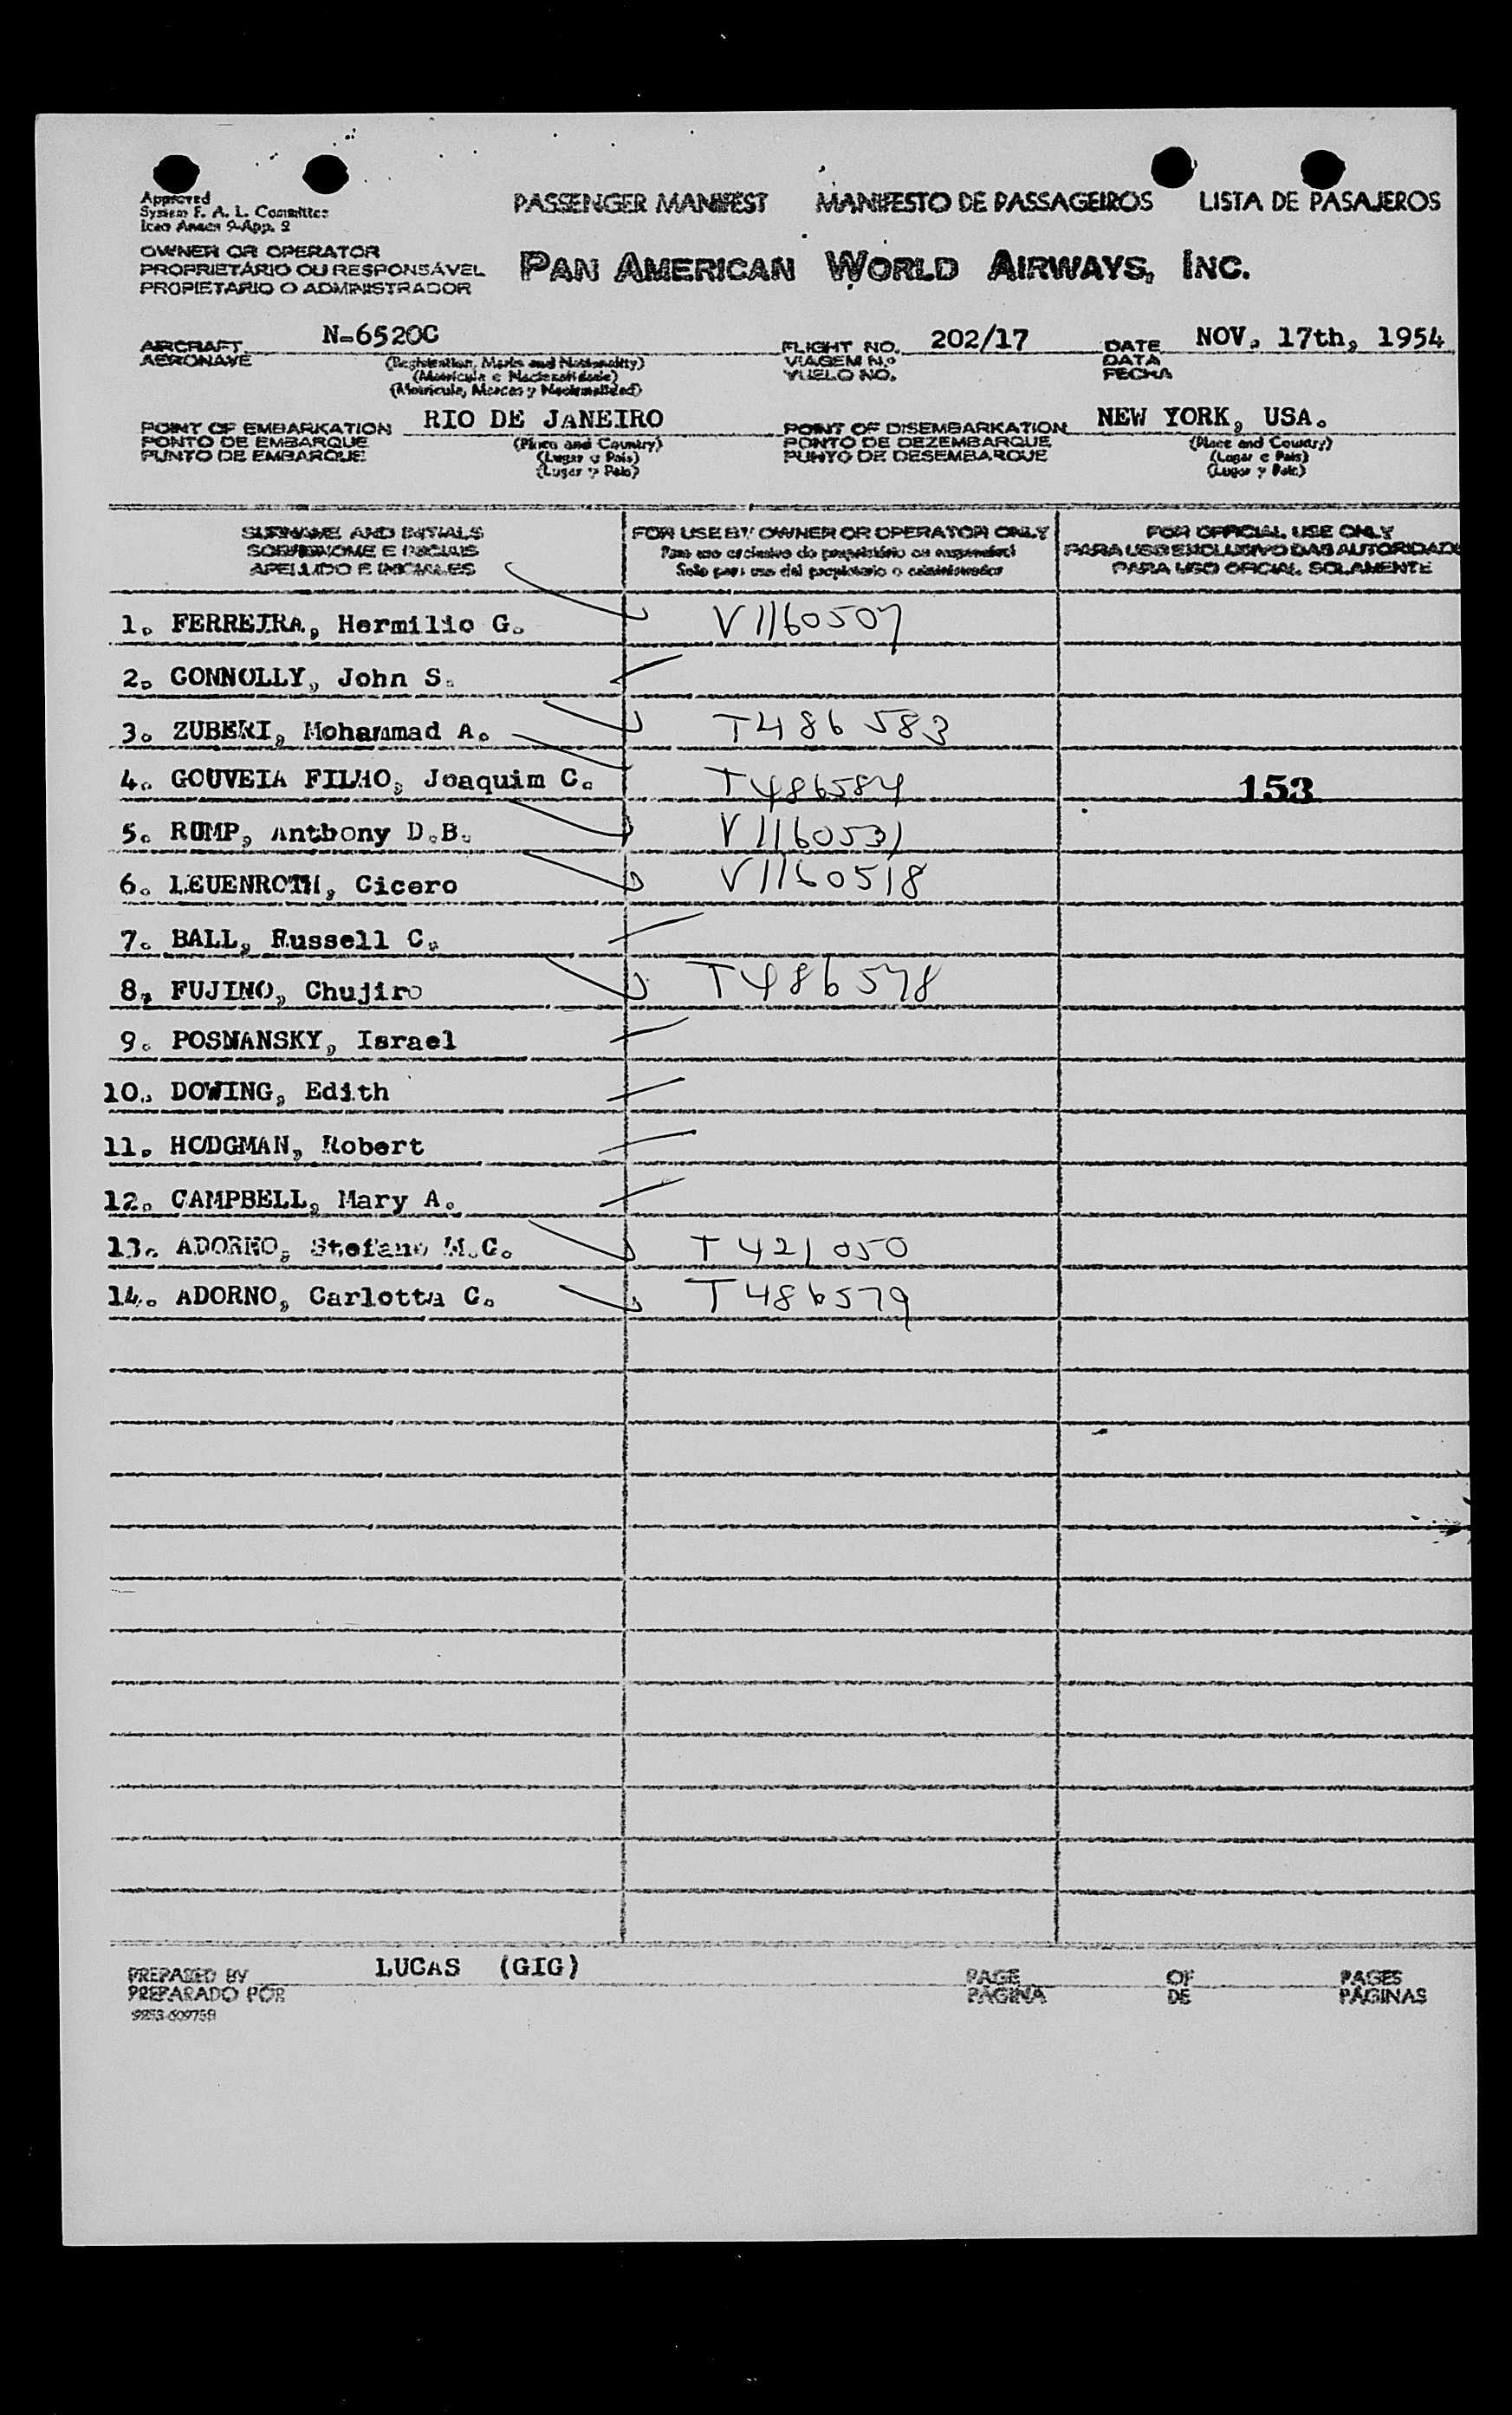 Approved
System F. A. L. Committee
Icao Annex 9-App. 2
PASSENGER MANIFEST MANIFESTO DE PASSAGEIROS LISTA DE PASAJEROS
OWNER OR OPERATOR
PROPRIETÁRIO OU RESPONSÁVEL
PROPIETARIO O ADMINISTRADOR
PAN AMERICAN WORLD AIRWAYS, INC.
AIRCRAFT N-6520C FLIGHT NO. 202/17 DATE NOV. 17th, 1954
AERONAVE (Registration, Marks and Nationality) VIAGEM N.º DATA
(Matrícula e Nacionalidade) VUELO NO. FECHA
(Matrícula, Marcas y Nacionalidad)
POINT OF EMBARKATION RIO DE JANEIRO POINT OF DISEMBARKATION NEW YORK, USA.
PONTO DE EMBARQUE (Place and Country) PONTO DE DEZEMBARQUE (Place and Country)
PUNTO DE EMBARQUE (Lugar e País) PUNTO DE DESEMBARQUE (Lugar e País)
(Lugar y País) (Lugar y País)
SURNAME AND INITIALS FOR USE BY OWNER OR OPERATOR ONLY FOR OFFICIAL USE ONLY
SOBRENOME E INICIAIS Para uso exclusivo do proprietário ou responsável PARA USO EXCLUSIVO DAS AUTORIDADE
APELLIDO E INICIALES Solo para uso del propietario o administrador PARA USO OFICIAL SOLAMENTE
1. FERREIRA, Hermilio G. V1160507
2. CONNOLLY, John S.
3. ZUBERI, Mohammad A. T486583
4. GOUVEIA FILHO, Joaquim C. T486584 153
5. RUMP, Anthony D.B. V1160531
6. LEUENROTH, Cicero V1160518
7. BALL, Russell C.
8. FUJINO, Chujiro T486578
9. POSNANSKY, Israel
10. DOWING, Edith
11. HODGMAN, Robert
12. CAMPBELL, Mary A.
13. ADORNO, Stefano M.C. T421050
14. ADORNO, Carlotta C. T486579
PREPARED BY LUCAS (GIG) PAGE OF PAGES
PREPARADO POR PÁGINA DE PÁGINAS